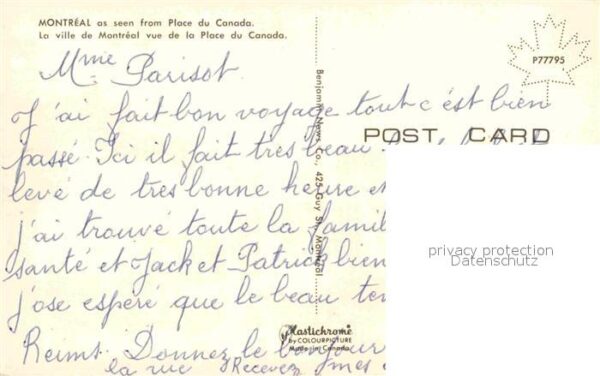 MONTRÉAL as seen from Place du Canada.
La ville de Montréal vue de la Place du Canada.
P77795
Mme Parisot
J'ai fait bon voyage tout c'ést bien
POST CARD
passé. Ici il fait tres beau
levé de tres bonne heure et
j'ai trouvé toute la famil
santé et Jack et Patrick bien
j'ose espéré que le beau tem
Reims. Donnez le bonjour
la rue Recevez mes
Benjamin News Co., 425 Guy St., Montréal
Plastichrome
by COLOURPICTURE
Made in Canada
privacy protection
Datenschutz